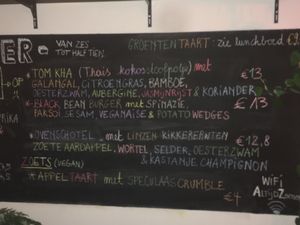 ER VAN ZES TOT HALF TIEN GROENTEN TAART: zie lunchbord €
* TOM KHA (Thais kokosstoofpotje) met €13
OP GALANGAL, CITROENGRAS, BAMBOE,
OESTERZWAM, AUBERGINE, JASMIJNRIJST & KORIANDER
* BLACK BEAN BURGER met SPINAZIE, €13
RIKA PAKSOI, SESAM, VEGANAISE & POTATO WEDGES
* OVENSCHOTEL met LINZEN KIKKERERWTEN €12,8
ZOETE AARDAPPEL, WORTEL, SELDER, OESTERZWAM
& KASTANJE CHAMPIGNON
ZOETS (VEGAN)
* APPELTAART met SPECULAAS CRUMBLE €4
WiFi